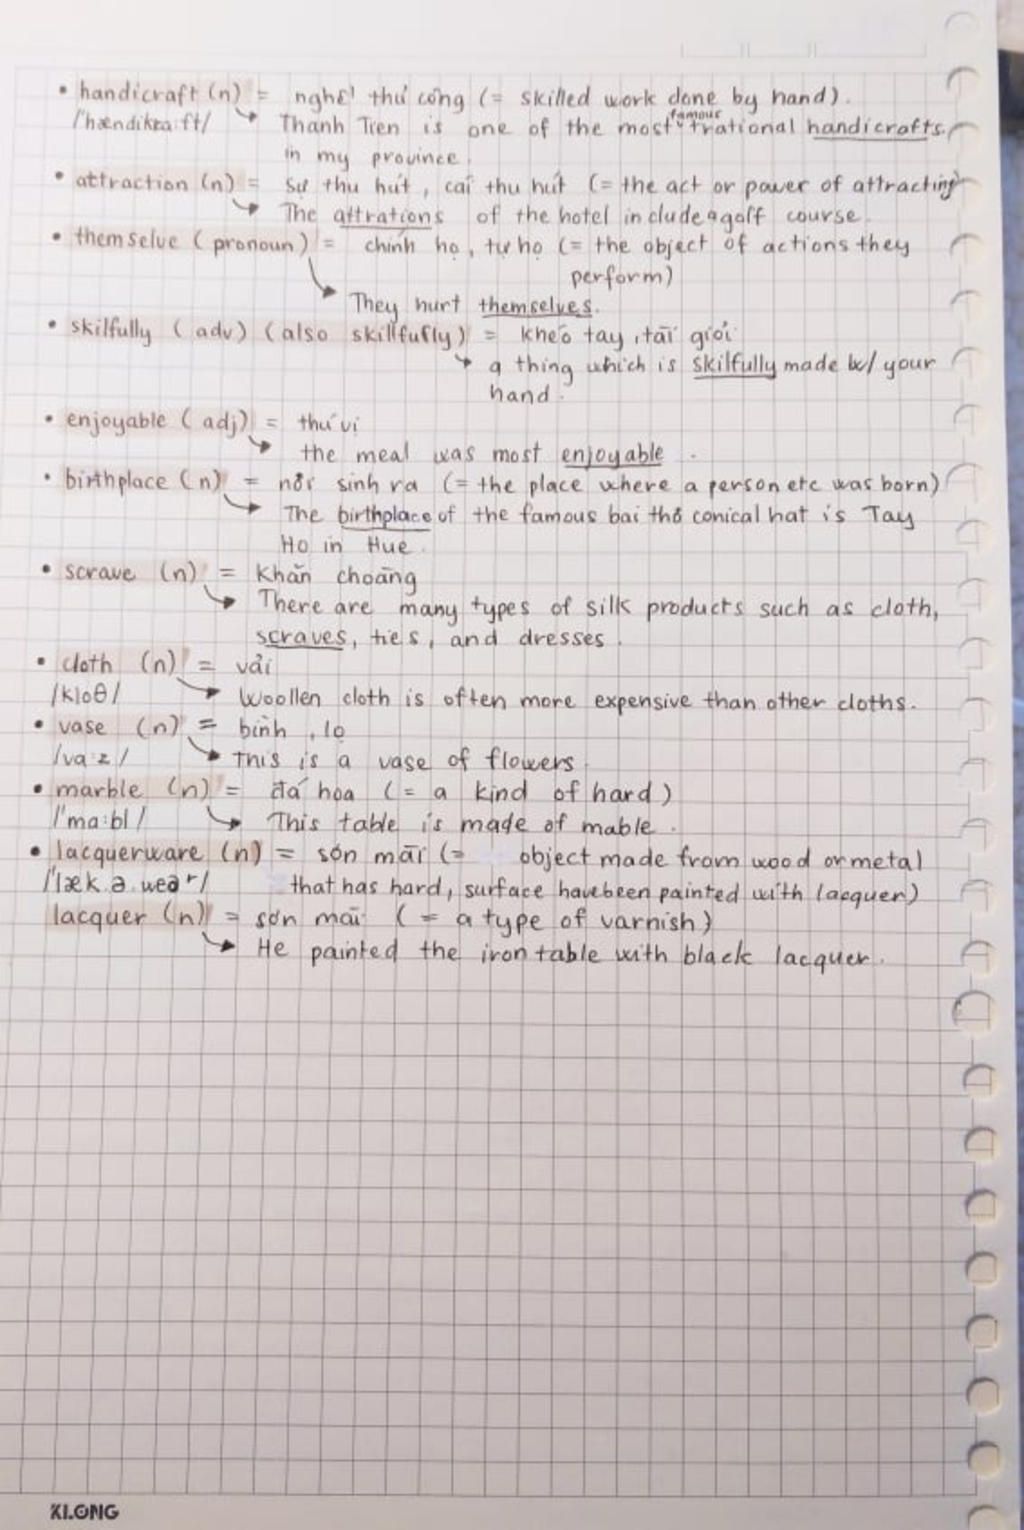 • handicraft (n) = nghề thủ công (= skilled work done by hand).
/'hændikra:ft/ Thanh Tien is one of the most famous trational handicrafts
in my province.
• attraction (n) = sự thu hút, cái thu hút (= the act or power of attracting
The attrations of the hotel include a golf course.
• themselve (pronoun) = chính họ, tự họ (= the object of actions they
perform)
They hurt themselves.
• skilfully (adv) (also skillfully) = khéo tay, tài giỏi
a thing which is skilfully made by your
hand.
• enjoyable (adj) = thú vị
the meal was most enjoyable.
• birthplace (n) = nơi sinh ra (= the place where a person etc was born)
The birthplace of the famous bai thơ conical hat is Tay
Ho in Hue.
• scrave (n) = khăn choàng
There are many types of silk products such as cloth,
scraves, ties, and dresses.
• cloth (n) = vải
/kloθ/ Woollen cloth is often more expensive than other cloths.
• vase (n) = bình, lọ
/va:z/ this is a vase of flowers
• marble (n) = đá hoa (= a kind of hard)
/'ma:bl/ This table is made of mable.
• lacquerware (n) = sơn mài (= object made from wood or metal
/'læk.ə.weər/ that has hard, surface have been painted with lacquer)
lacquer (n) = sơn mài (= a type of varnish)
He painted the iron table with black lacquer.
KLONG